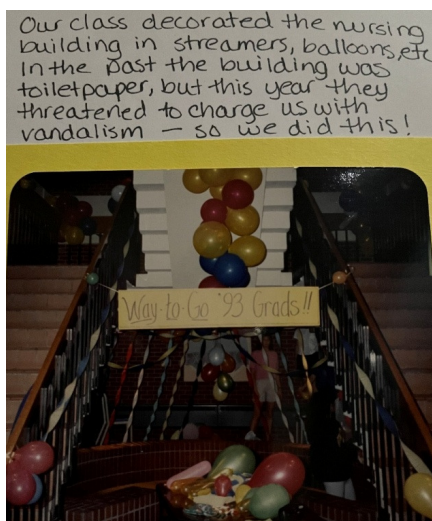 Our class decorated the nursing
building in streamers, balloons, etc
In the past the building was
toiletpaper, but this year they
threatened to charge us with
vandalism — so we did this!
Way-to-Go '93 Grads!!